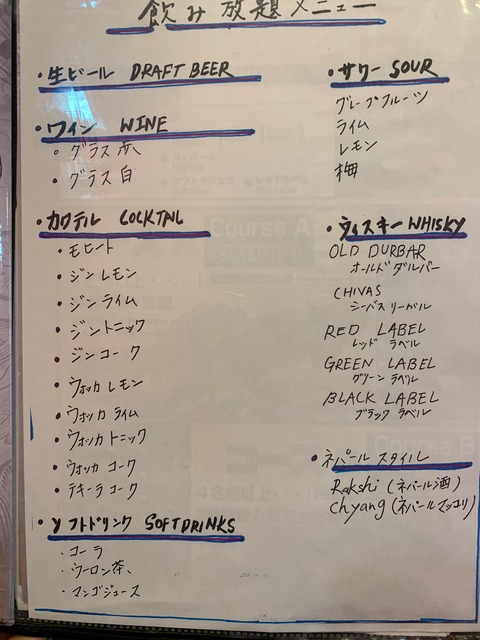 飲み放題メニュー
・生ビール DRAFT BEER
・ワイン WINE
・グラス 赤
・グラス 白
・カクテル COCKTAIL
・モヒート
・ジン レモン
・ジン ライム
・ジントニック
・ジン コーク
・ウォッカ レモン
・ウォッカ ライム
・ウォッカ トニック
・ウォッカ コーク
・テキーラ コーク
・ソフトドリンク SOFTDRINKS
・コーラ
・ウーロン茶、
・マンゴジュース
・サワー SOUR
グレープフルーツ
ライム
レモン
梅
・ウィスキー WHISKY
OLD DURBAR
オールド ダルバー
CHIVAS
シーバス リーガル
RED LABEL
レッド ラベル
GREEN LABEL
グリーン ラベル
BLACK LABEL
ブラック ラベル
・ネパール スタイル
Rakshi (ネパール酒)
Chyang (ネパールマッコリ)